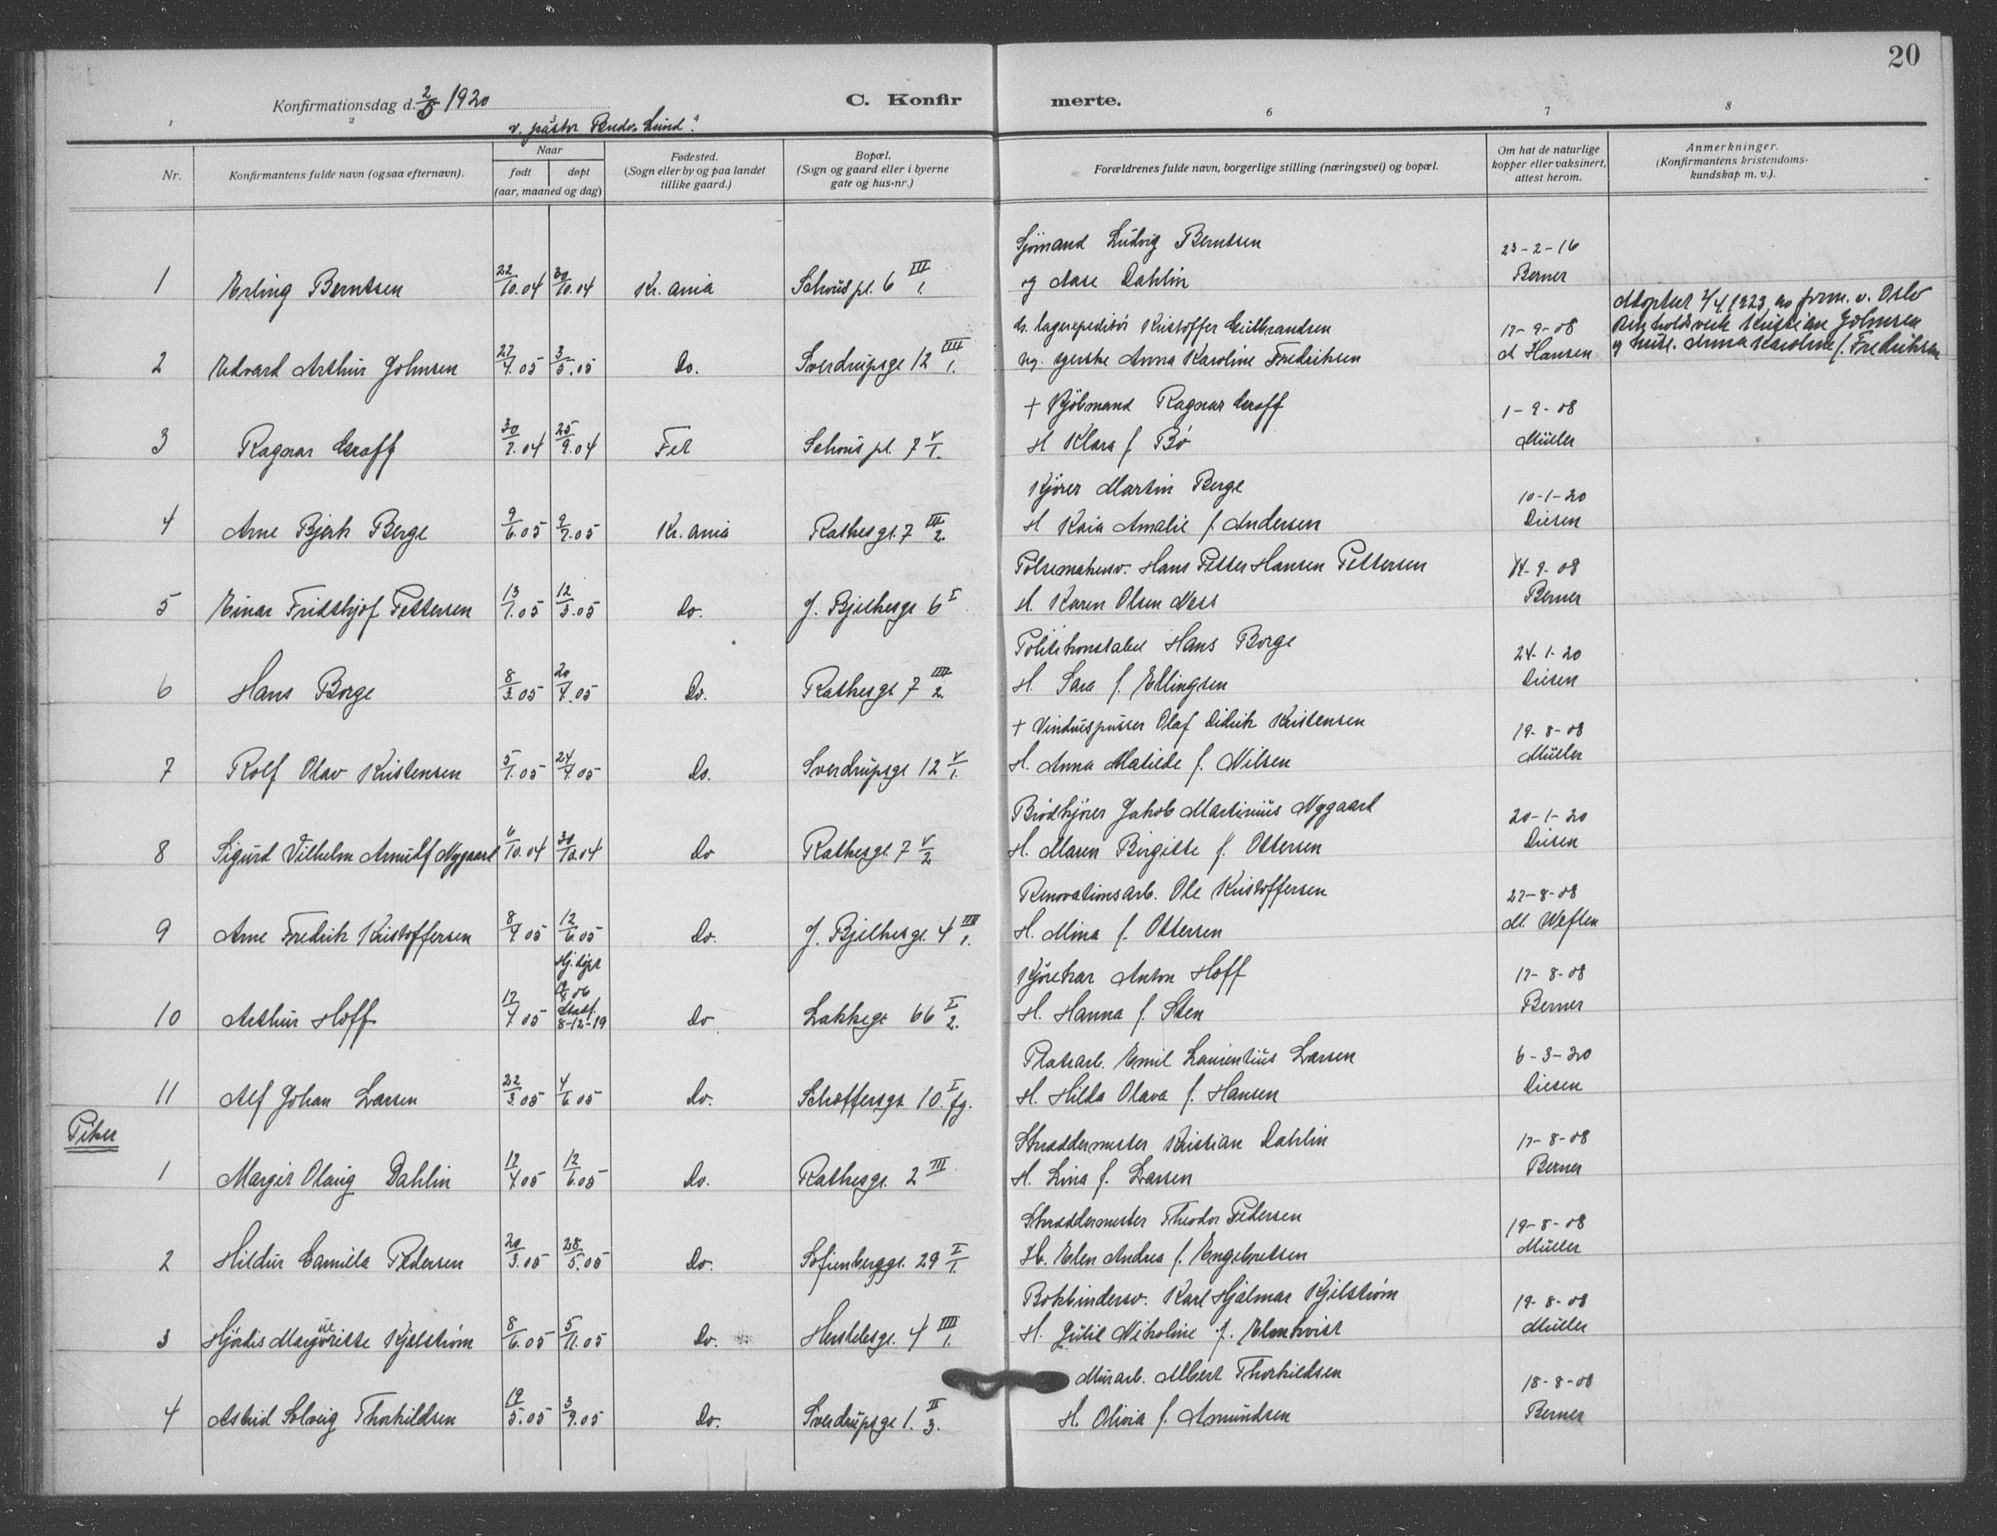 20
Konfirmationsdag d. 2/5 1920
C. Konfirmerte.
v. pastor Lund.
1 2 3 4 6 7 8
Nr.
Konfirmantens fulde navn (ogsaa efternavn).
Naar
født døpt
(aar, maaned og dag)
Fødested.
(Sogn eller by og paa landet
tillike gaard.)
Bopæl.
(Sogn og gaard eller i byerne
gate og hus-nr.)
Forældrenes fulde navn, borgerlige stilling (næringsvei) og bopæl.
Om hat de naturlige
kopper eller vaksinert,
attest herom.
Anmerkninger.
(Konfirmantens kristendoms-
kundskap m. v.).
Sjømand Ludvig Berntsen 23-2-16
1 Erling Berntsen 22/10.04 30/10.04 Kr.ania Schous pl. 6 III/1. og Aase Dahlin Berner
Adoptert 1/4 1923 av form. v. Oslo
lagerexpeditør Kristoffer Gulbrandsen 17-9-08 Kristian Johnsen
2 Edvard Arthur Johnsen 27/4.05 3/5.05 Do. Sverdrupsge 12 IIII/1. ug. syerske Anna Karoline Fredriksen A Hansen og hust. Anna Karoline f. Fredriksen
+ Kjøbmand Ragnar Graff 1-9-08
3 Ragnar Graff 30/7.04 25/9.04 Fet Schous pl. 7 V/1. H. Klara f. Bø Müller
Kjører Martin Berge 10-1-20
4 Arne Bjerk Berge 9/6.05 9/7.05 Kr.ania Rathkesgt. 7 III/2. H. Kaia Amalie f. Andersen Diesen
Pølsemakersv. Hans Petter Hansen Pettersen 14-9-08
5 Einar Fridthjof Pettersen 13/1.05 12/3.05 Do. J. Bjelkesge 6 I H. Karen Olsen Næss Berner
Politikonstabel Hans Borge 24-1-20
6 Hans Borge 8/3.05 20/4.05 Do. Rathkesgt 7 III/2. H. Sara f. Ellingsen Diesen
+ Vinduspusser Olaf Didrik Kristensen 19-8-08
7 Rolf Olav Kristensen 5/1.05 24/4.05 Do. Sverdrupsge 12 V/1. H. Anna Matilde f. Nilsen Müller
Brødkjører Jakob Martinius Nygaard 20-1-20
8 Sigurd Vilhelm Arnulf Nygaard 6/10.04 30/10.04 Do Rathkesgt 7 V/2 H. Maren Birgitte f. Ottersen Diesen
Renovationsarb. Ole Kristoffersen 27-8-08
9 Arne Fredrik Kristoffersen 8/4.05 12/6.05 Do. J. Bjelkesge. 4 III/1. H. Mina f. Ottersen M.
Hj. døpt
Kjørekar Anton Hoff 17-8-08
10 Arthur Hoff 17/7.05 Stadf. 8-12-19 Do Lakkegt 66 I/2. H. Hanna f. Sten Berner
Pladsarb. Emil Laurentius Larsen 6-3-20
11 Alf Johan Larsen 22/3.05 4/6.05 Do. Schæffersgt 10. I/fg. H. Hilda Olava f. Hansen Diesen
Piker
Skræddermester Kristian Dahlin 17-8-08
1 Margit Olaug Dahlin 12/4.05 12/6.05 Do. Rathkesgt. 2 III H. Lina f. Larsen Berner
Skræddermester Theodor Pedersen 19-8-08
2 Hildur Camilla Pedersen 20/3.05 28/5.05 Do. Sofienberggt. 29 I/1. H. Elen Andrea f. Engebretsen Müller
Bokbindersv. Karl Hjalmar Kjelstrøm 19-8-08
3 Hjørdis Margueritte Kjelstrøm 8/6.05 5/11.05 Do. Herslebsgt. 4 IIII/1. H. Julie Nikoline f. Elmkvist Müller
Murarb. Albert Thorkildsen 18-8-08
4 Astrid Solveig Thorkildsen 19/5.05 3/9.05 Do. Sverdrupsge 1. II/3. H. Olivia f. Amundsen Berner